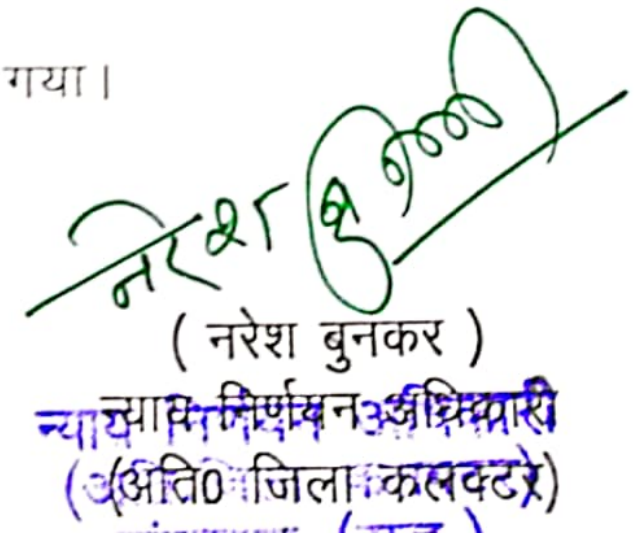 गया।
नरेश
( नरेश बुनकर )
न्याय निर्णयन अधिकारी
(अति0 जिला कलक्टर)